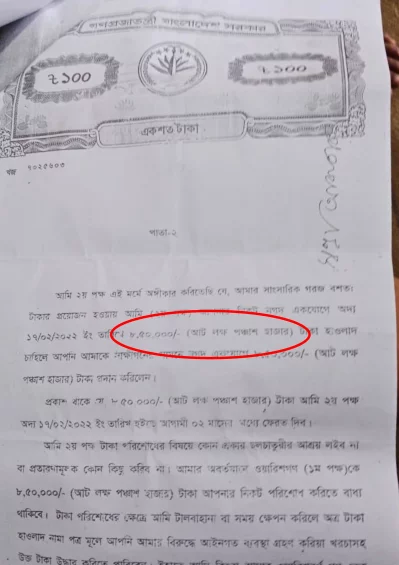 গণপ্রজাতন্ত্রী বাংলাদেশ সরকার
৳১০০ ৳১০০
একশত টাকা
পাতা-২
আমি ২য় পক্ষ এই মর্মে অঙ্গীকার করিতেছি যে, আমার সাংসারিক গরজ বশতঃ
টাকার প্রয়োজন হওয়ায় আমি নগদ একযোগে অদ্য
১৭/০২/২০২২ ইং তারিখে ৮,৫০,০০০/- (আট লক্ষ পঞ্চাশ হাজার) টাকা হাওলাদ
চাহিলে আপনি আমাকে একযোগে ৮,৫০,০০০/- (আট লক্ষ
পঞ্চাশ হাজার) টাকা প্রদান করিলেন।
প্রকাশ থাকে যে ৮,৫০,০০০/- (আট লক্ষ পঞ্চাশ হাজার) টাকা আমি ২য় পক্ষ
অদ্য ১৭/০২/২০২২ ইং তারিখ হইতে আগামী ০২ মাসের মধ্যে ফেরত দিব।
আমি ২য় পক্ষ টাকা পরিশোধের বিষয়ে কোন প্রকার ছলচাতুরীর আশ্রয় লইব না
বা প্রতারণামূলক কোন কিছু করিব না। আমার অবর্তমানে ওয়ারিশগণ (১ম পক্ষ)কে
৮,৫০,০০০/- (আট লক্ষ পঞ্চাশ হাজার) টাকা আপনার নিকট পরিশোধ করিতে বাধ্য
থাকিবে। টাকা পরিশোধের ক্ষেত্রে আমি টালবাহানা বা সময় ক্ষেপন করিলে অত্র টাকা
হাওলাদ নামা পত্র মূলে আপনি আমার বিরুদ্ধে আইনগত ব্যবস্থা গ্রহণ করিয়া খরচাসহ
উক্ত টাকা উদ্ধার করিতে পারিবেন।